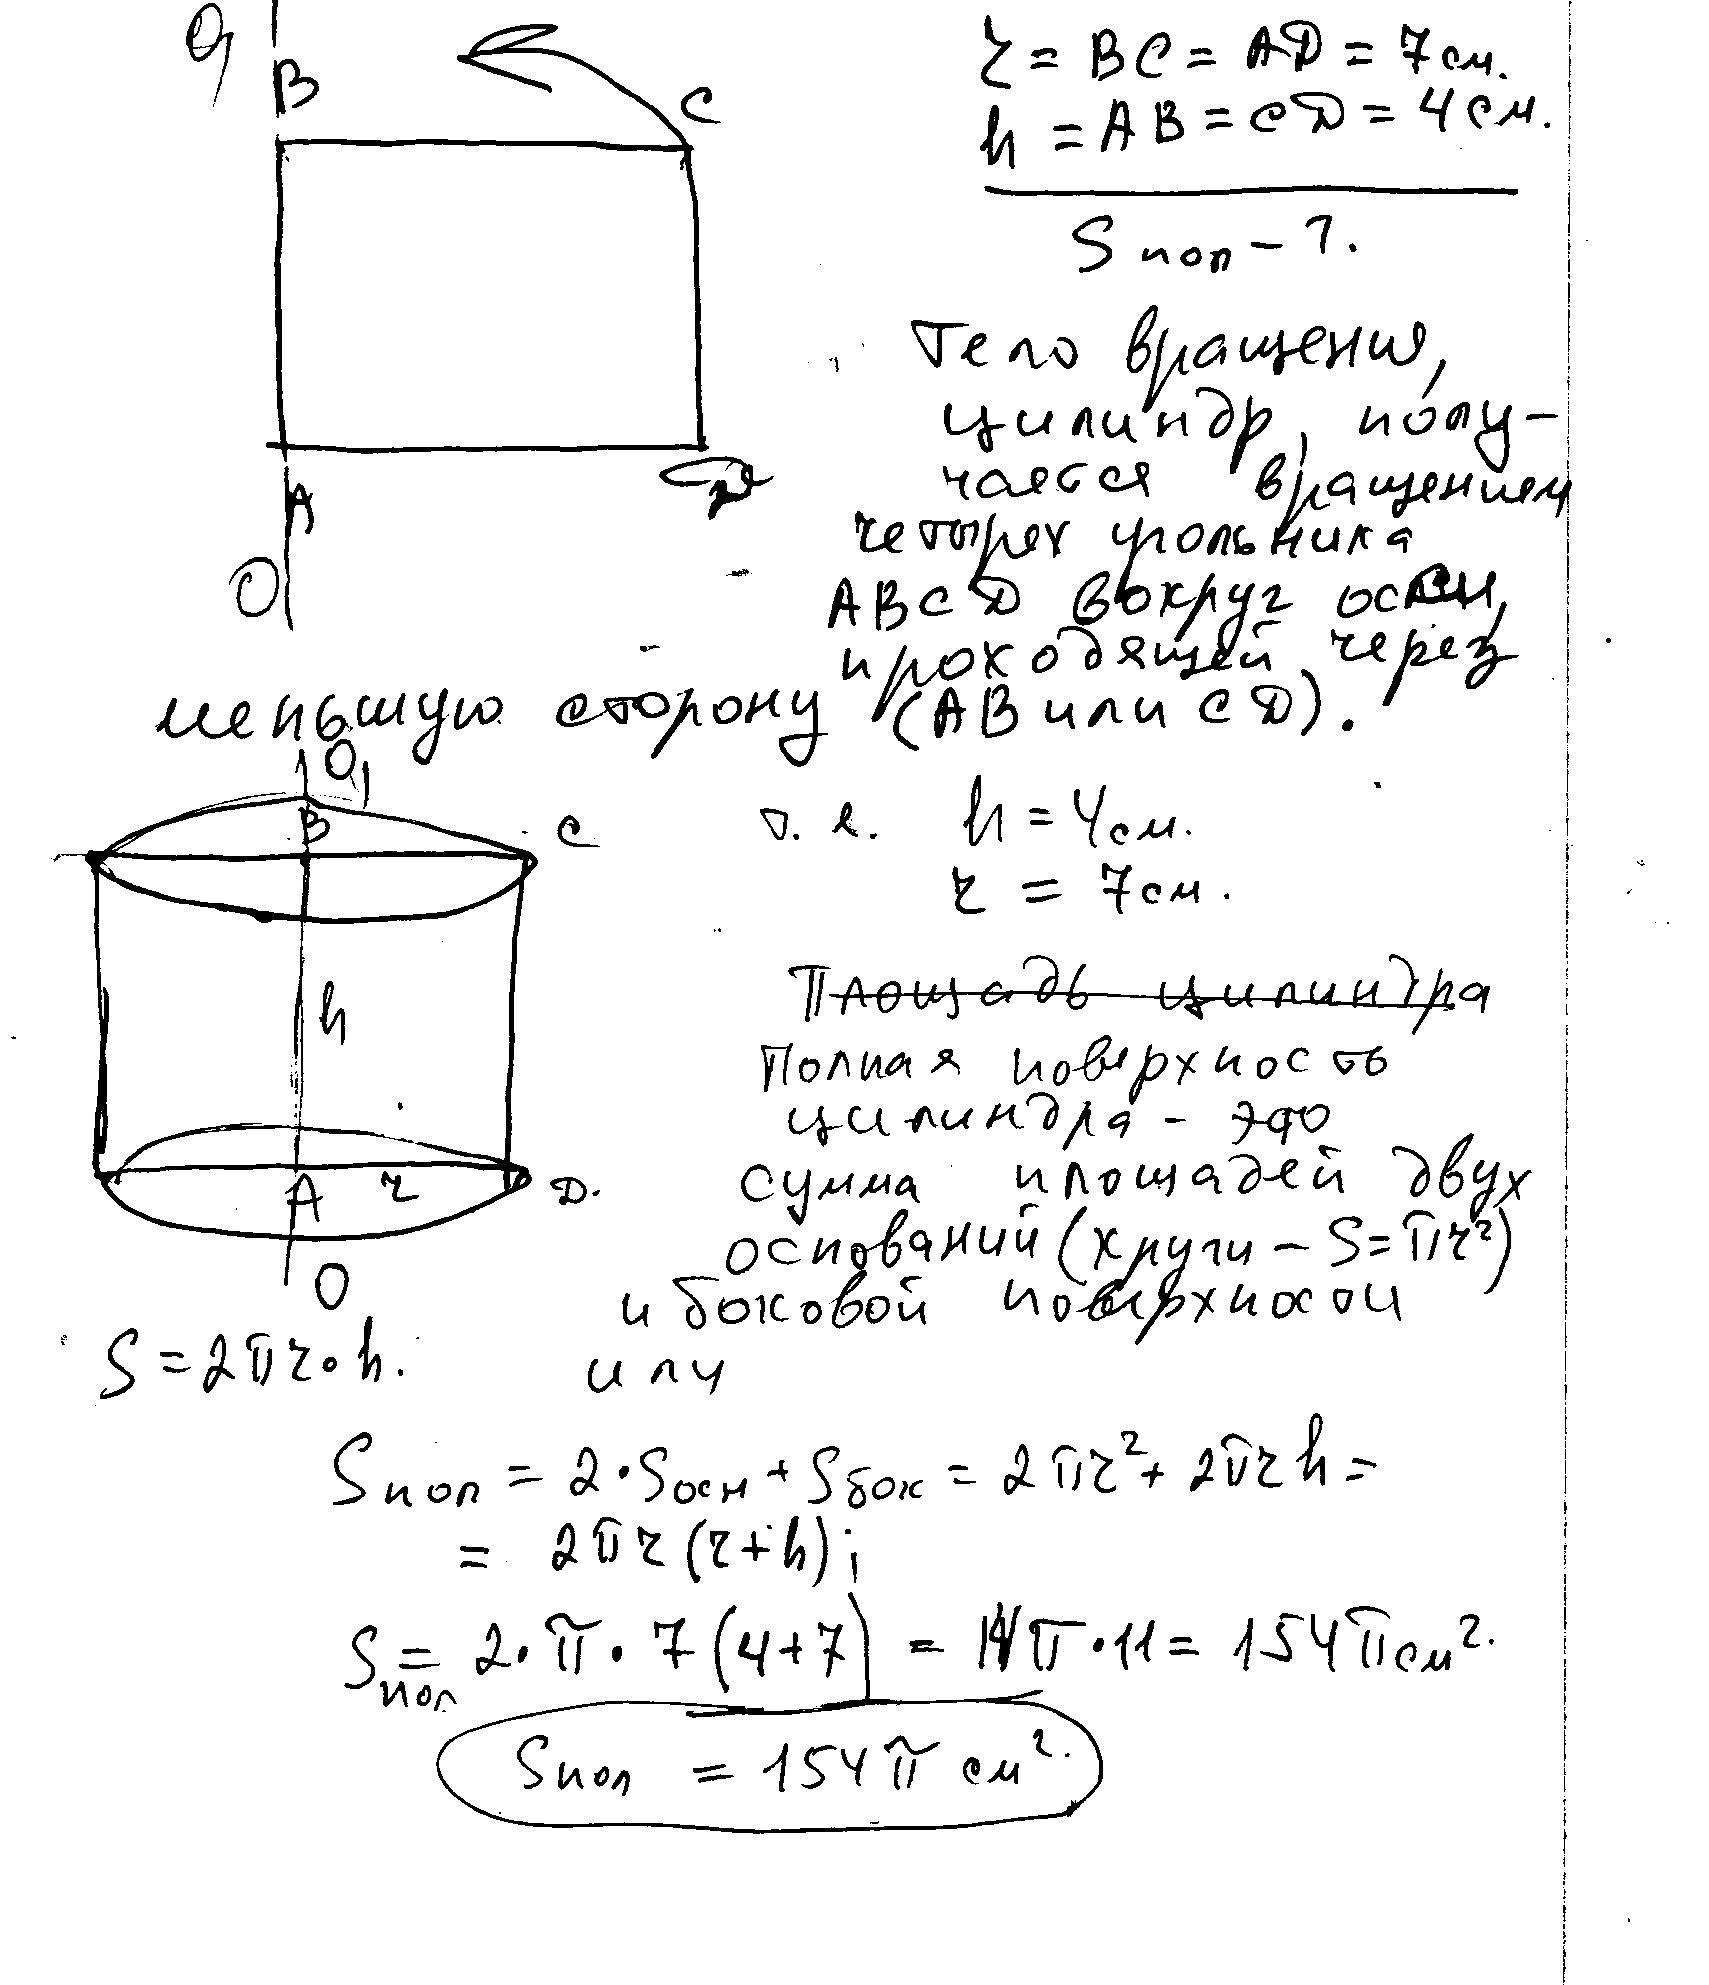 O₁
B
C
r = BC = AD = 7 см.
h = AB = CD = 4 см.
Sпол - ?.
Тело вращения,
цилиндр, полу-
чается вращением
четырех угольника
ABCD вокруг оси,
проходящей через
меньшую сторону (AB или CD).
A
O
O₁
B
C
h
A r D.
O
т. е. h = 4 см.
r = 7 см.
Площадь цилиндра
Полная поверхность
цилиндра - это
сумма площадей двух
оснований (круги - S = πr²)
и боковой поверхности
S = 2πr · h. или
Sпол = 2 · Sосн + Sбок = 2πr² + 2πrh =
= 2πr (r + h);
Sпол = 2 · π · 7 (4+7) = 14π · 11 = 154π см².
Sпол = 154π см².